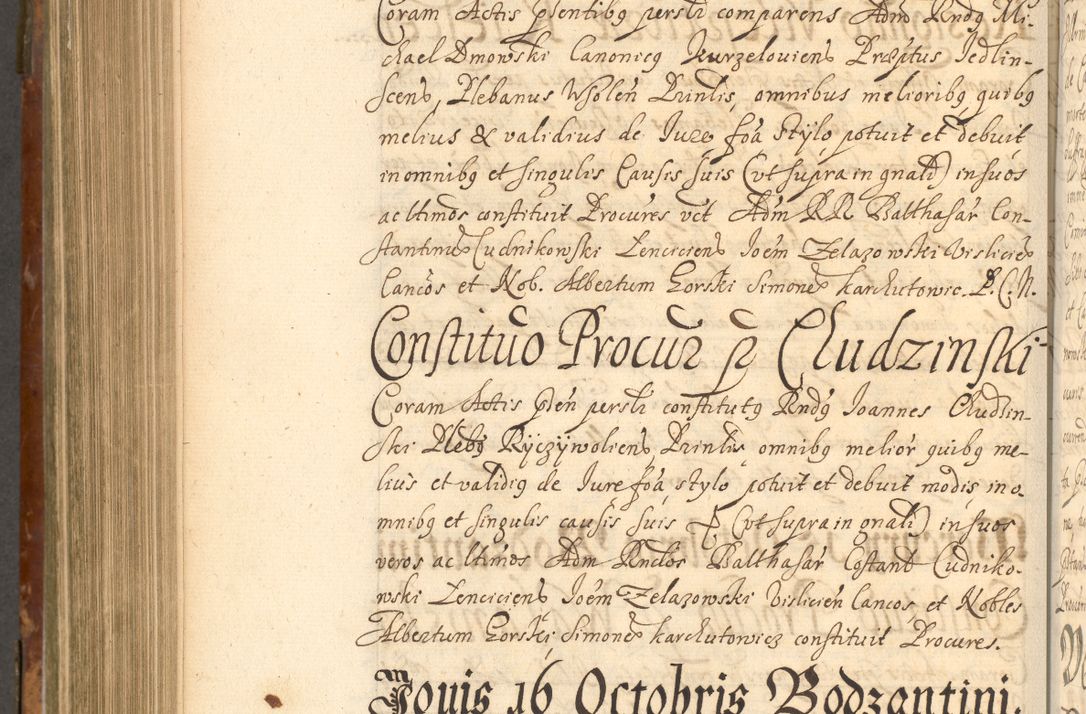 Coram Actis pſentibꝫ perſli comparens Adm Rndꝫ Mi-
chael Dmowski Canonicꝫ Kurzelovienſ Præptus Jedlin-
scens, Plebanus Wſoleń Prinlis, omnibus melioribꝫ quibꝫ
melius & validius de Jure foa ſtylo potuit et debuit
in omnibꝫ et ſingulis Cauſis ſuis (vt ſupra in gnali) in ſuos
ac ltimos conſtituit Procures vct Adm RR Balthaſar Con-
ſtantinū Cudnikowſki Lencicienſ Joem Zelazowski Vislicień
Cancos et Nob. Albertum Gorski Simonē Karchutowic. P. C. N.
Conſtituo Procur p Chudzinſki
Coram Actis pſeń perſli conſtitutꝫ Rndꝫ Joannes Chudzin-
ſki Plebꝫ Ryczywolienſ Prinlis, omnibꝫ melior quibꝫ me-
lius et validiꝫ de Jure foa, stylo potuit et debuit modis, in o-
mnibꝫ et ſingulis cauſis ſuis (vt ſupra in gnali) in ſuos
veros ac ltimos Adm Rndos Balthaſar Coſtant Cudniko-
wski Lencicienſ Joem Zelazowski Vislicień Cancos, et Nobles
Albertum Gorski, Simonē Karchutowicz conſtituit Procures.
Jouis 16 Octobris Bodzantini.